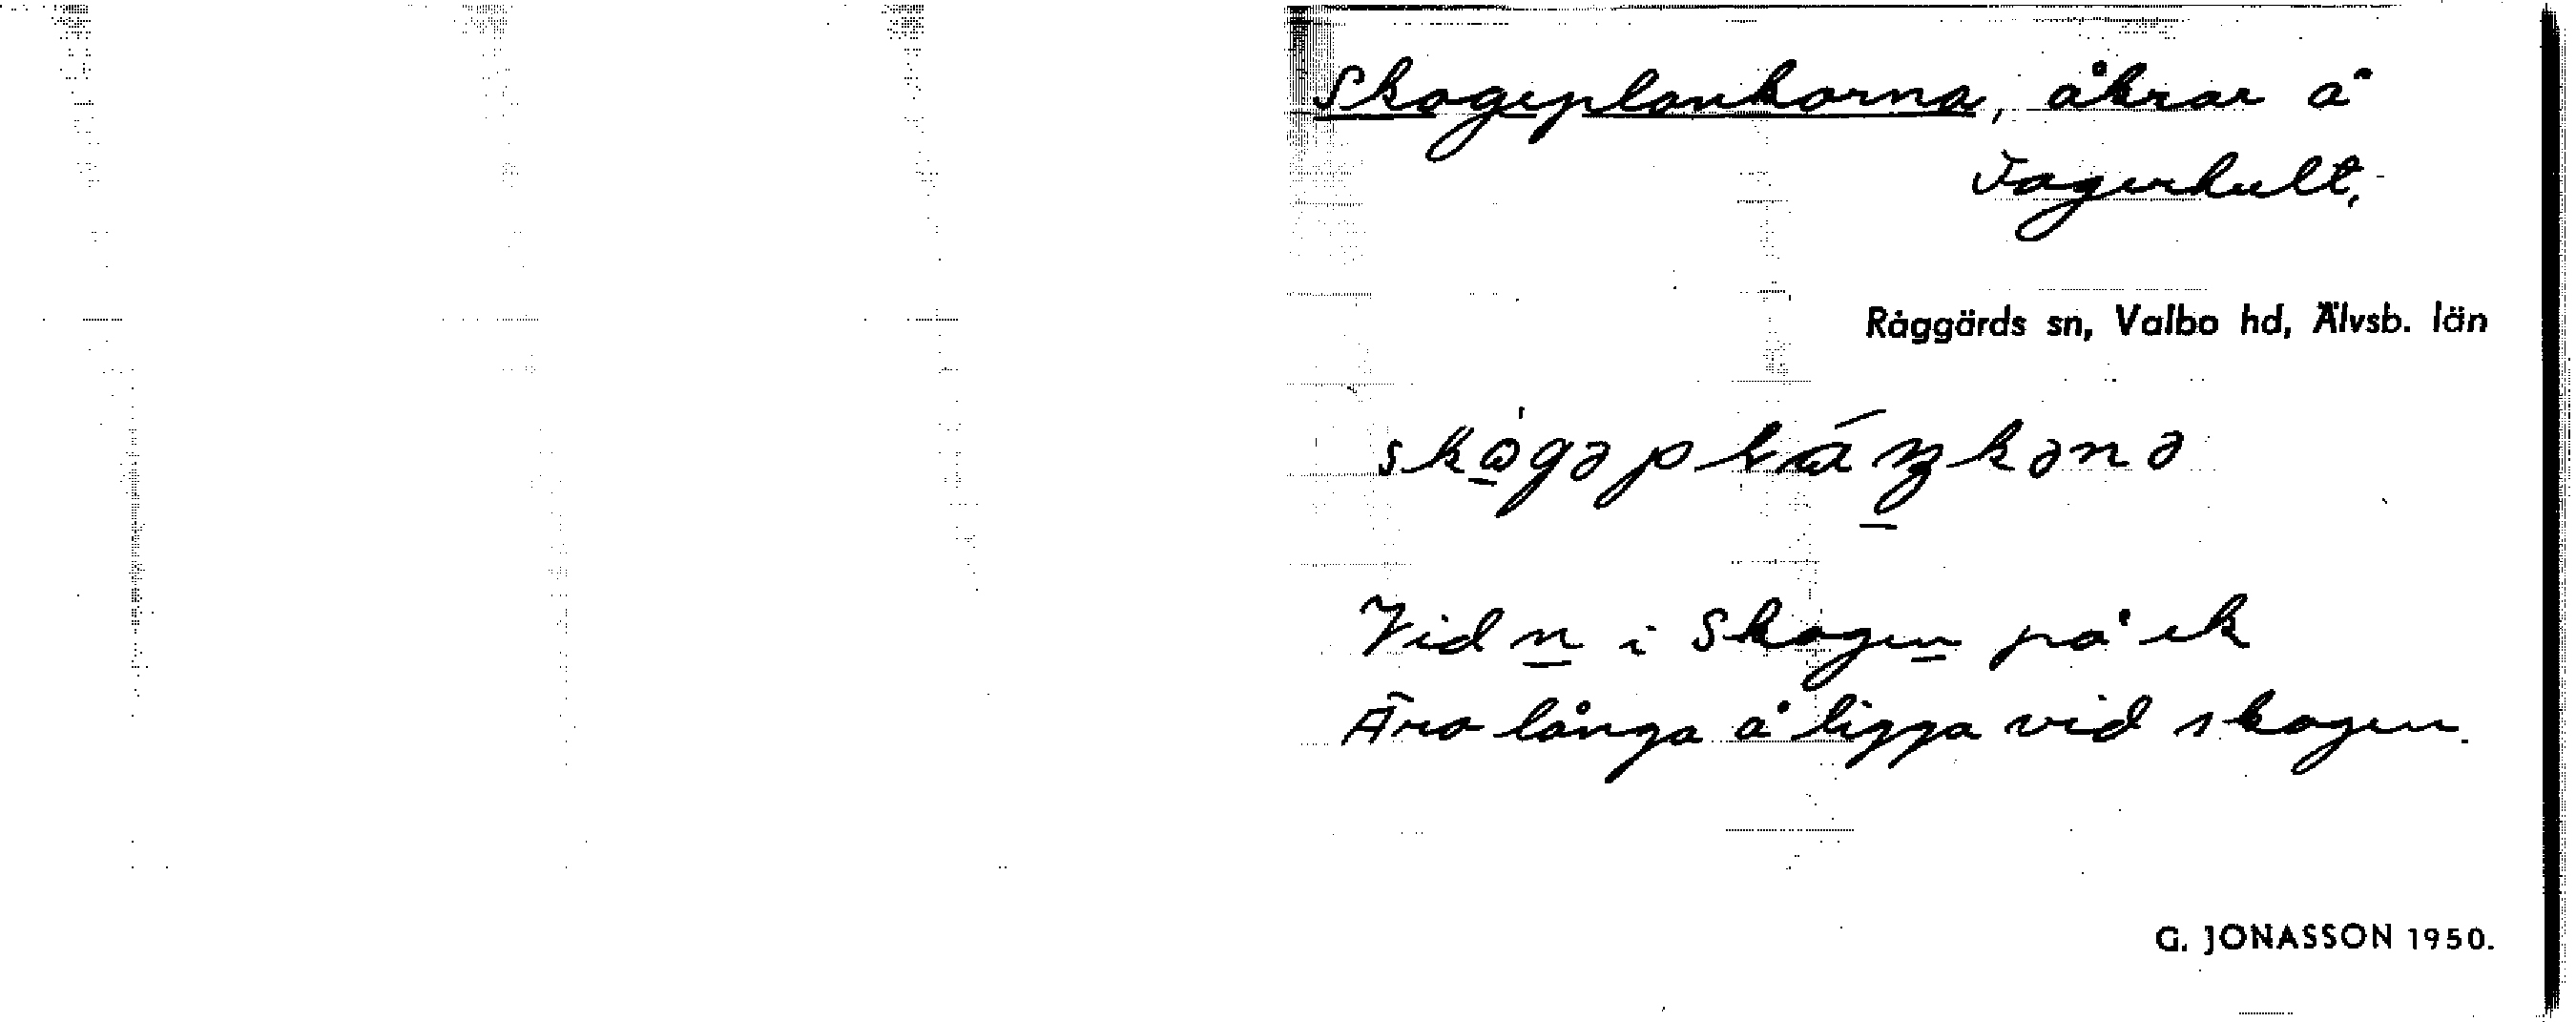 Skogeplankorna, åkrar å
Fagerhult.
Råggärds sn, Valbo hd, Älvsb. län
Vid n i Skogen på ek
Äro långa å ligga vid skogen.
G. JONASSON 1950.